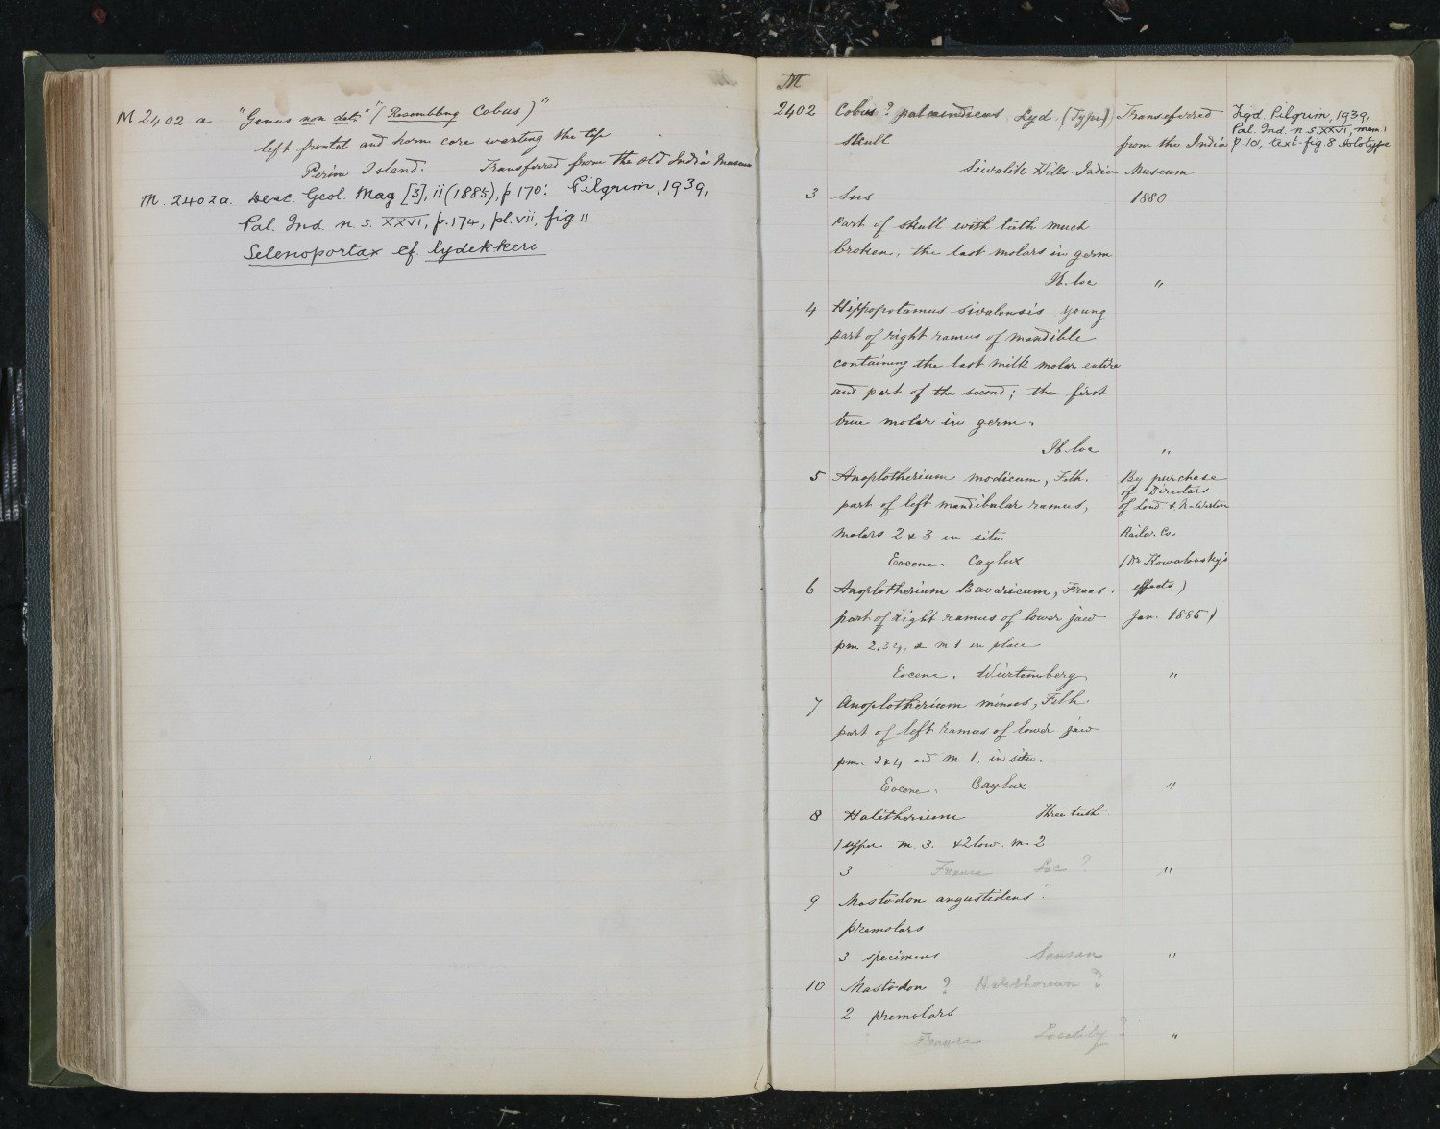 M 2402 a "Genus non det." "(Resembling Cobus)"
left frontal and horn core wanting the tip
Perim Island. Transferred from the old India Museum
M. 2402a. Desc. Geol. Mag [3], ii (1885), p 170. Pilgrim, 1939,
Pal. Ind. n. s. XXVI, p. 174, pl. vii, fig 11
Selenoportax cf. lydekkeri
M
2402 Cobus? palaeindicus Lyd. (Type)
Skull
Siwalik Hills India
Transferred
from the India
Museum
1880
Fyd. Pilgrim, 1939,
Pal. Ind. n. s. XXVI, mem. 1
p 101, text-fig. 8 Holotype
3 Sus
Part of skull with teeth much
broken, the last molars in germ
Ib. loc "
4 Hippopotamus sivalensis young
part of right ramus of mandible
containing the last milk molar entire
and part of the second; the first
true molar in germ.
Ib. loc "
5 Anoplotherium modicum, Filh.
part of left mandibular ramus,
molars 2 & 3 in situ
Eocene. Caylux
By purchase
of Directors
of Lond. &
Railw. Co.
(Dr Kowalevsky's
effects)
Jan. 1885)
6 Anoplotherium Bavaricum, Fraas.
part of right ramus of lower jaw
pm 2, 3, 4, & m 1 in place
Eocene. Würtemberg "
7 Anoplotherium minus, Filh.
part of left ramus of lower jaw
pm. 3 & 4 and m 1. in situ.
Eocene. Caylux "
8 Halitherium Three teeth
1 upper m. 3. & 2 low. m. 2
3 France Loc ? "
9 Mastodon angustidens
premolars
3 specimens Sansan "
10 Mastodon ? Halitherium ?
2 premolars
France Locality ? "